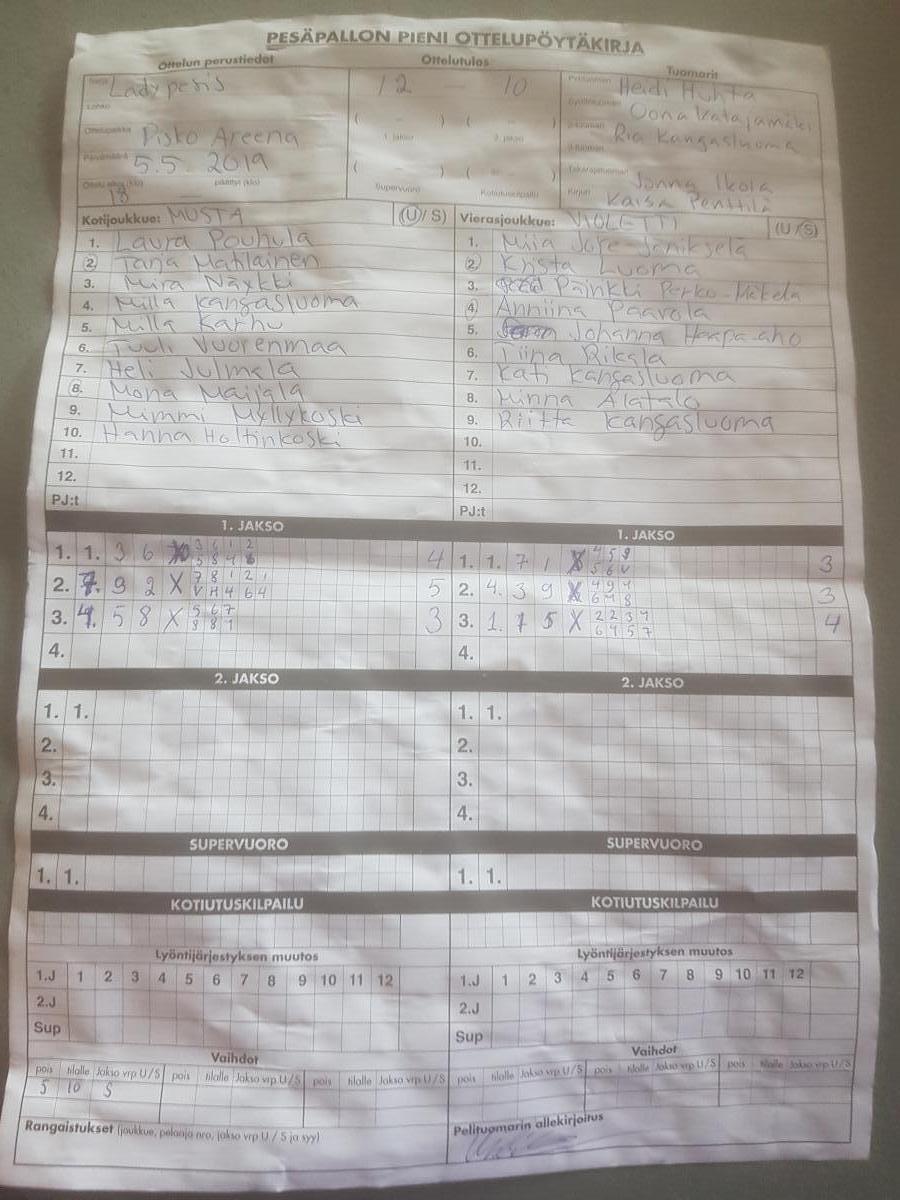 PESÄPALLON PIENI OTTELUPÖYTÄKIRJA
Ottelun perustiedot Ottelutulos Tuomarit
Ladypesis 12 - 10 Pelituomari Heidi Huhta
Lohko
Ottelupaikka Pisko Areena ( - ) ( - ) Ria Kangasluoma
1. jakso 2. jakso
Päivämäärä 5.5. 2019 ( - ) ( - ) Takarajatuomari Jonna Ikola
Ottelu alkoi (klo) 18 päättyi (klo) Supervuoro Kotiutuskilpailu Kirjuri Kaisa Penttilä
Kotijoukkue: MUSTA (U/S) Vierasjoukkue: VIOLETTI (U/S)
1. Laura Pouhula 1. Miia
2. Tanja Matilainen 2. Krista Luoma
3. Mira Näykki 3. Päinkki Perko-Mäkelä
4. Milla Kangasluoma 4. Anniina Paavola
5. Milla Karhu 5. Johanna Haapa-aho
6. Tuuli Vuorenmaa 6. Tiina Rikala
7. Heli Julmala 7. Kati Kangasluoma
8. Mona Maijala 8. Minna Alatalo
9. Mimmi Myllykoski 9. Riitta Kangasluoma
10. Hanna Holtinkoski 10.
11. 11.
12. 12.
PJ:t PJ:t
1. JAKSO 1. JAKSO
1. 1. 3 6 X 4 1. 1. 7 1 X 4 5 9 3
2. 9 2 X 7 8 1 2 1 5 2. 4. 3 9 X 4 9 4 3
3. 4. 5 8 X 5 6 7 3 3. 1. 7 5 X 2 2 3 4
6 4 5 7
4. 4.
2. JAKSO 2. JAKSO
1. 1. 1. 1.
2. 2.
3. 3.
4. 4.
SUPERVUORO SUPERVUORO
1. 1. 1. 1.
KOTIUTUSKILPAILU KOTIUTUSKILPAILU
Lyöntijärjestyksen muutos Lyöntijärjestyksen muutos
1.J 1 2 3 4 5 6 7 8 9 10 11 12 1.J 1 2 3 4 5 6 7 8 9 10 11 12
2.J 2.J
Sup Sup
Vaihdot Vaihdot
pois tilalle Jakso vrp U/S pois tilalle Jakso vrp U/S pois tilalle Jakso vrp U/S pois tilalle Jakso vrp U/S pois tilalle Jakso vrp U/S pois tilalle Jakso vrp U/S
5 10 S
Rangaistukset (joukkue, pelaaja nro, jakso vrp U / S ja syy) Pelituomarin allekirjoitus